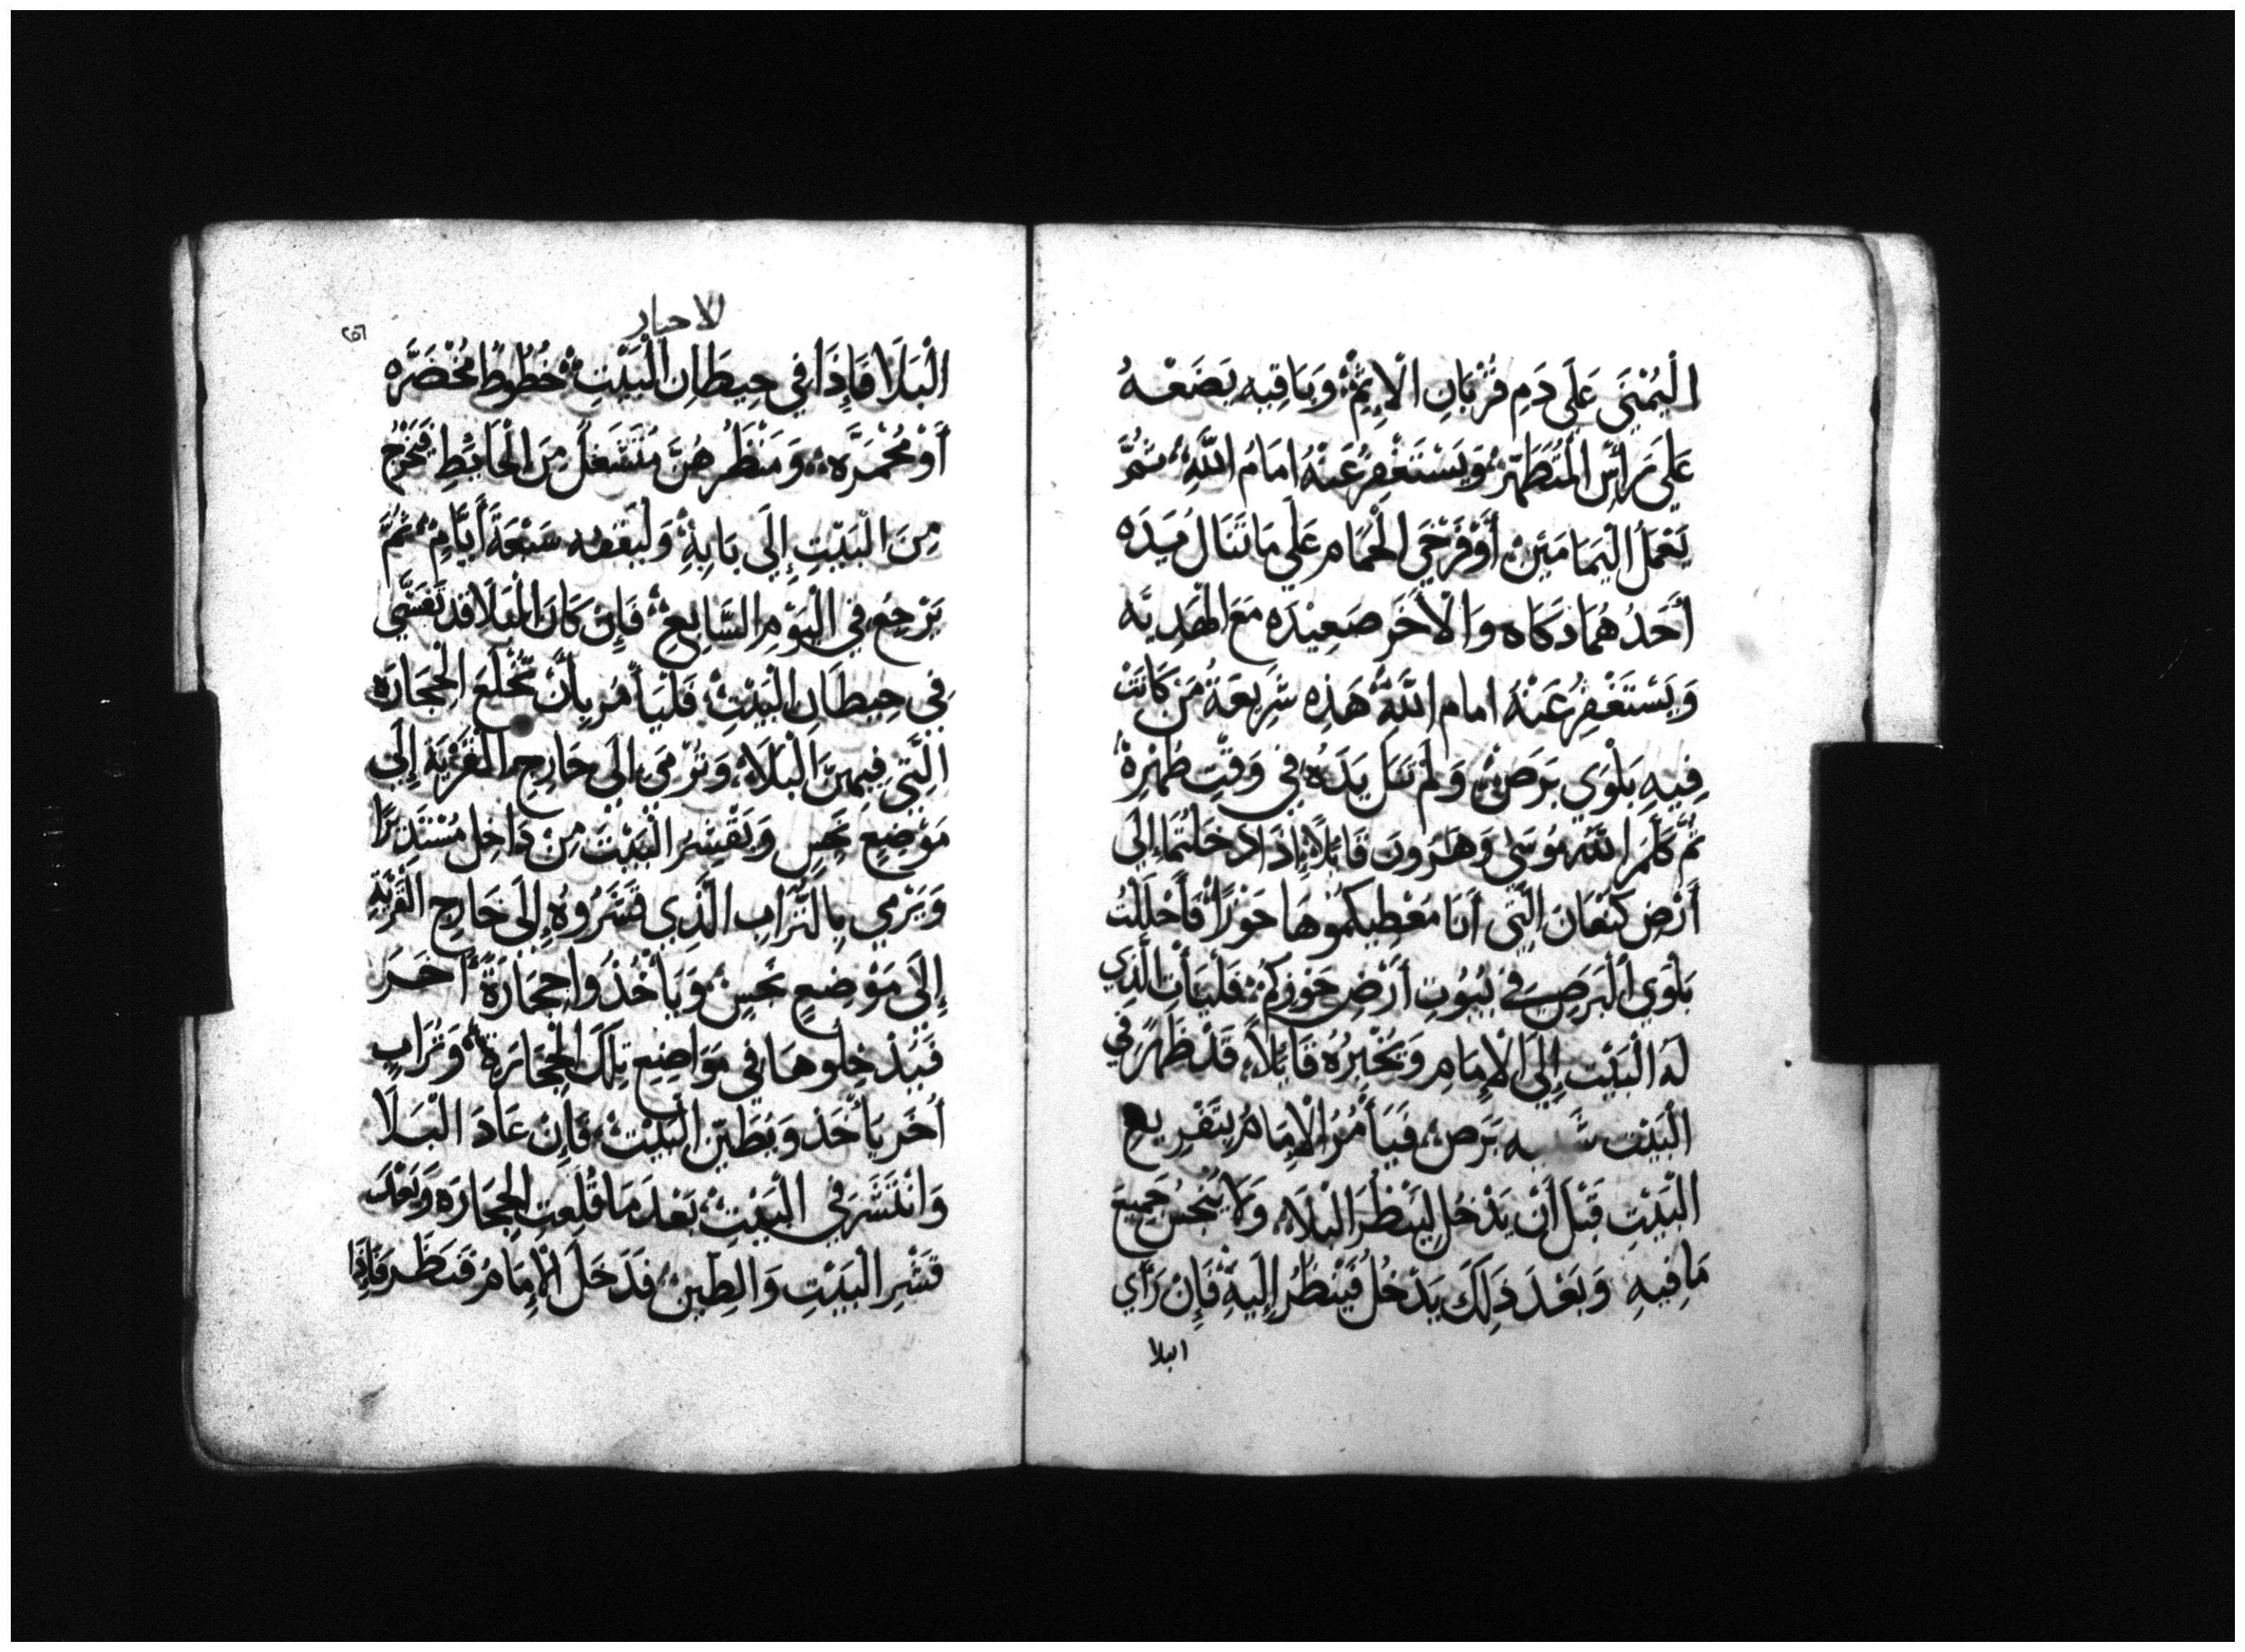 الْيُمْنَى عَلَى دَمِ قُرْبَانِ الْإِثْمِ وَبَاقِيه يَضَعْهُ
عَلَى رَأْسِ الْمُتَطَهِّرْ وَيَسْتَغْفِرُ عَنْهُ امَامُ اللَّهِ ثُمَّ
يَعْمَلُ الْيَمَامَتَيْنِ أَوْ فَرْخَيِ الْحَمَامِ عَلَى مَا تَنَال يَدَه
أَحَدُهُمَا ذكَاه وَالْأَخَر صَعِيْدَه مَعَ الْهَدِيَّه
وَيَسْتَغْفِرُ عَنْهُ امام اللَّهِ هَذِهِ شَرِيعَةُ مَن كَانَتْ
فِيهِ بَلْوَي بَرَصْ وَلَمْ تَنَل يَدَهُ فِي وَقْتِ طُهْرِهْ
ثُمَّ كَلَّمَ اللَّهُ مُوسَى وَهَرُونَ قَائِلًا إِذَا دَخَلْتُمَا إِلَي
أَرْضِ كَنْعَانَ الَّتِي أَنَا مُعْطِيكُمُوهَا حَوْزًا فَأَحْلَلْتُ
بَلْوَي الْبَرَصِ فِي بُيُوتِ أَرْضِ حَوْزِكُمْ فَلْيَأْتِ الَّذِي
لَهُ الْبَيْتِ إِلَي الْإِمَامِ وَيُخْبِرُهُ قَائِلًا قَدْ ظَهَرَ فِي
الْبَيْت شبه بَرَص فَيَأْمُرُ الْإِمَامُ بِتَفْرِيغِ
الْبَيْتِ قَبْلَ أَنْ يَدْخُل لِيَنْظُرَ الْبَلَا وَلَا يُنَجِّسُ جَمِيعَ
مَا فِيهِ وَبَعْدَ ذَلِكَ يَدْخُلُ فَيَنْظُرُ إِلَيْهِ فَإِنْ رَأَي
البلا
الاحبار
٢٥٦
الْبَلَا فَإِذَا فِي حِيطَانِ الْبَيْتِ خُطُوطًا مُخْضَرَّه
أَوْ مُحْمَرَّه وَمَنْظَرُهُنَّ مُتَسَفِّلٌ مِنَ الْحَائِطِ فَيَخْرُجُ
مِنَ الْبَيْتِ إِلَى بَابِهِ وَلْيَغْلِقه سَبْعَةَ أَيَّامٍ ثُمَّ
يَرْجِعُ فِي الْيَوْمِ السَّابِعِ فَإِن كَانَ الْبَلَا قَد تَفَشَّي
فِي حِيطَانِ الْبَيْتِ فَلْيَأْمُر بِأَنْ تُخْلَعَ الْحِجَارَه
الَّتِي فِيهِنَّ الْبَلَا وَتُرْمَي إِلَي خَارِجِ الْقَرْيَةِ إِلَى
مَوْضِعٍ نَجِسٍ وَيَقْشِرُ الْبَيْتَ مِنْ دَاخِل مُسْتَدِيرًا
وَيَرْمِي بِالتُّرَابِ الَّذِي قَشَرُوهُ إِلَى خَارِجِ الْقَرْيَةِ
إِلَى مَوْضِعٍ نَجِسٍ وَيَأْخُذُوا حِجَارَةً أُخَر
فَيُدْخِلُوهَا فِي مَوَاضِعِ تِلْكَ الْحِجَارَةِ وَتُرَابٍ
أَخَر يَأْخُذ وَيُطَيِّن الْبَيْتْ فَإِنْ عَادَ الْبَلَا
وَانْتَشَرَ فِي الْبَيْتِ بَعْدَ مَا قُلِعَتِ الْحِجَارَه وَبَعْدَ
قَشْرِ الْبَيْتِ وَالطِّينِ فَدَخَلَ الْإِمَامُ فَنَظَر فَإِذَا